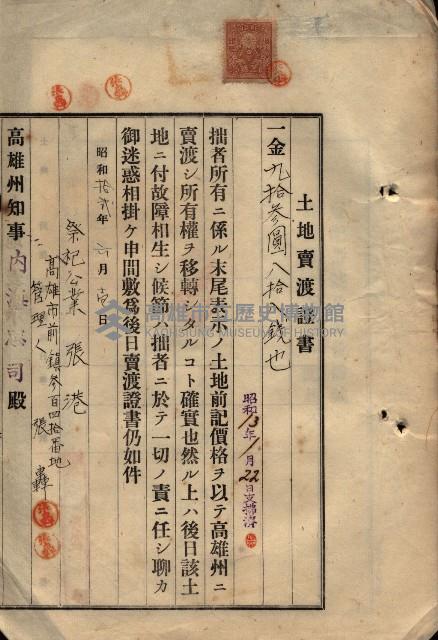 土地賣渡證書
一金九拾參圓八拾錢也
昭和13年1月22日支拂濟
拙者所有ニ係ル末尾表示ノ土地前記價格ヲ以テ高雄州ニ
賣渡シ所有權ヲ移轉シタルコト確實也然ル上ハ後日該土
地ニ付故障相生シ候節ハ拙者ニ於テ一切ノ責ニ任シ聊カ
御迷惑相掛ケ申間敷爲後日賣渡證書仍如件
昭和拾貳年 六月壱日
祭祀公業 張港
高雄市前鎭參百四拾番地
管理人 張
高雄州知事 内海忠司殿
高雄市立歷史博物館
KAOHSIUNG MUSEUM OF HISTORY